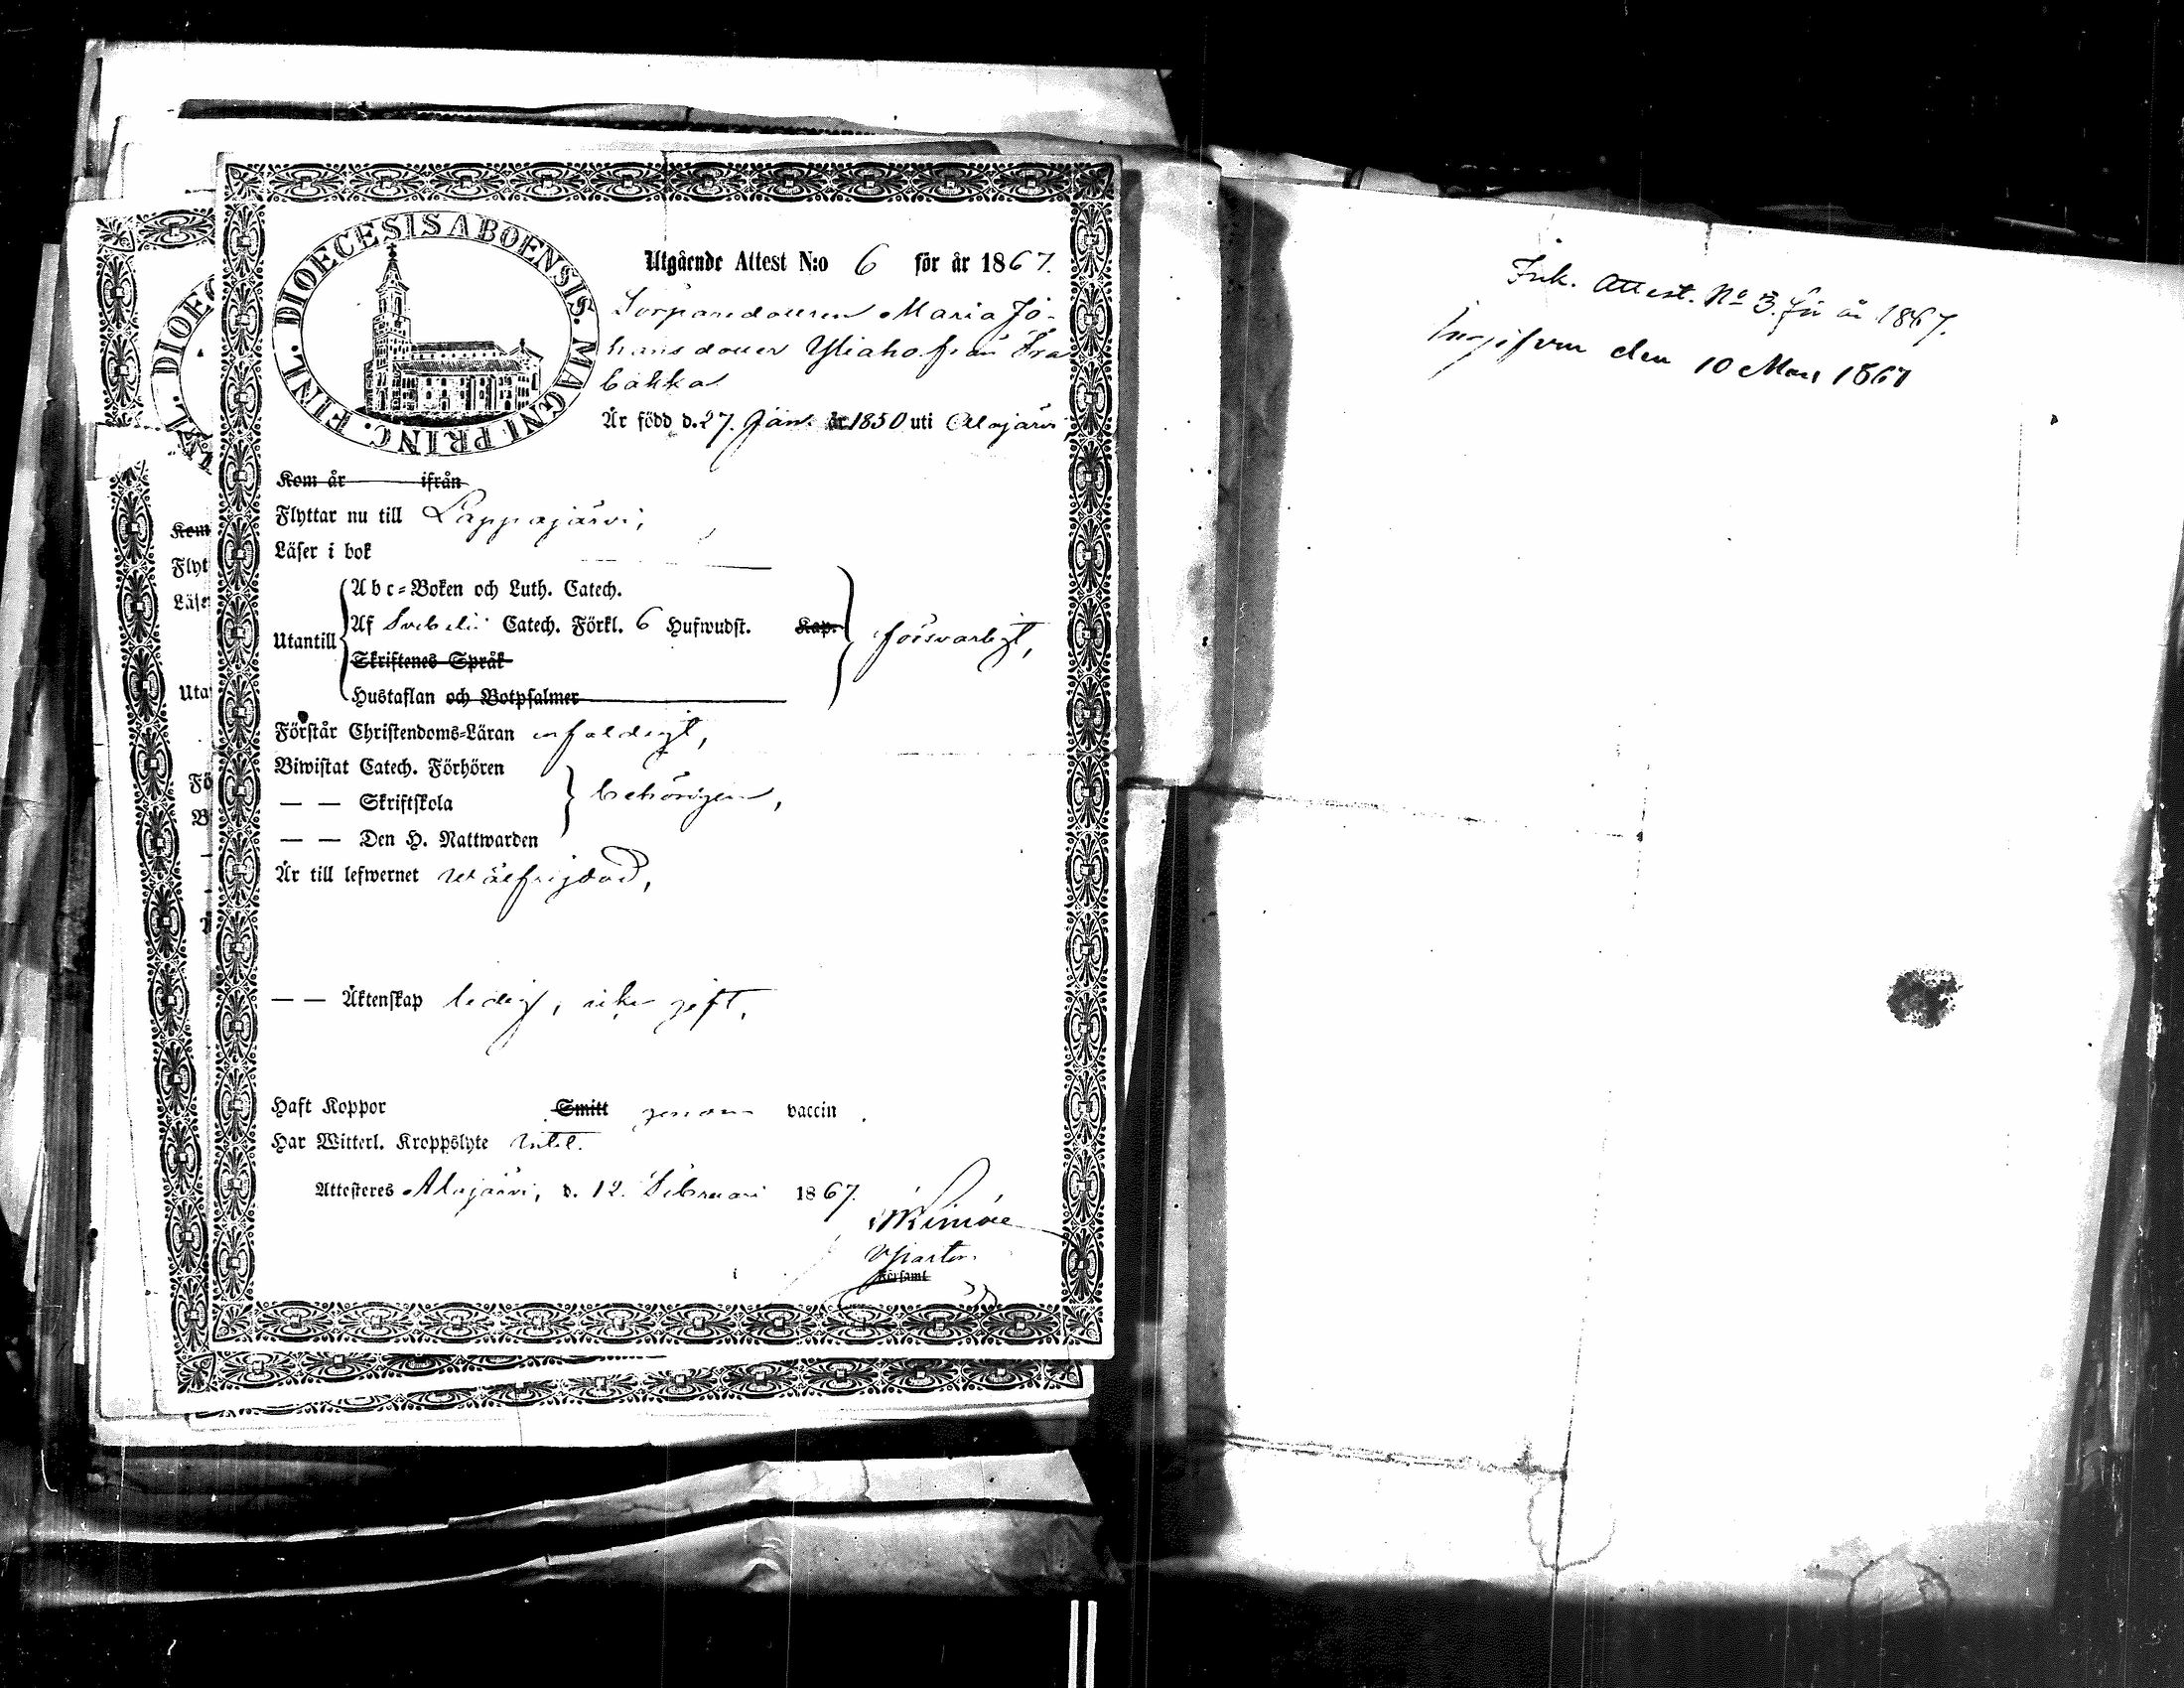 DIOECESIS ABOENSIS. MAGNI PRINC. FINL.
Utgående Attest N:o 6 för år 1867.
Torparedottren Maria Jo-
hansdotter Yliaho från
backa
Är född d. 27. Jan. år 1850 uti Alajärvi,
Kom år ifrån
Flyttar nu till Lappajärvi,
Läser i bok
Utantill
Abc-Boken och Luth. Catech.
Af Svebelii Catech. Förkl. 6 Hufwudst. Kap.
Skriftenes Språk
Hustaflan och Botpsalmer
försvarligt,
Förstår Christendoms-Läran enfaldigt,
Biwistat Catech. Förhören
— — Skriftskola
— — Den H. Nattwarden
behörigen,
Är till lefwernet wälfrejdad,
— — Äktenskap ledig, icke gift.
Haft Koppor Smitt genom vaccin.
Har Witterl. Kroppslyte intet.
Attesteres Alajärvi, d. 12. Februari 1867.
VPastor.
Församl
Ink. Attest. No 3. för år 1867.
Ingifven den 10 Mars 1867
DIOE
Kom
Flyt
Läse
Uta
Fö
B